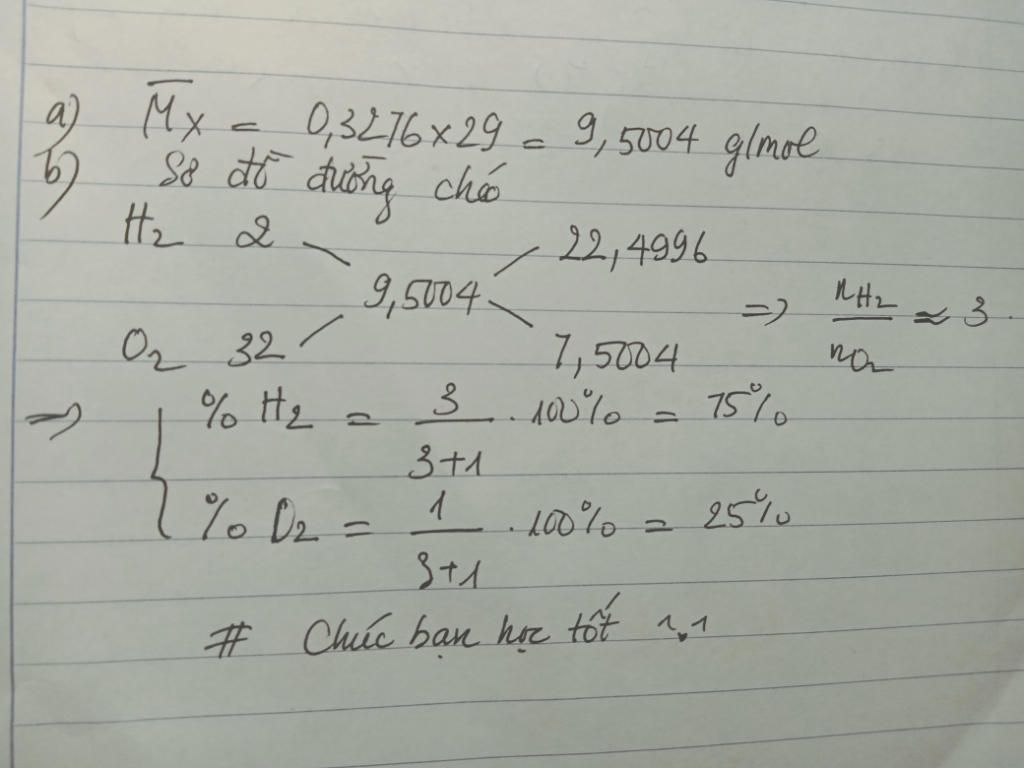 a) M̅x = 0,3276×29 = 9,5004 g/mol
b) Sơ đồ đường chéo
H₂ 2 22,4996
9,5004 => nH₂/nO₂ ≈ 3.
O₂ 32 7,5004
=> { % H₂ = 3/(3+1) . 100% = 75%
% O₂ = 1/(3+1) . 100% = 25%
# Chúc bạn học tốt ^.^